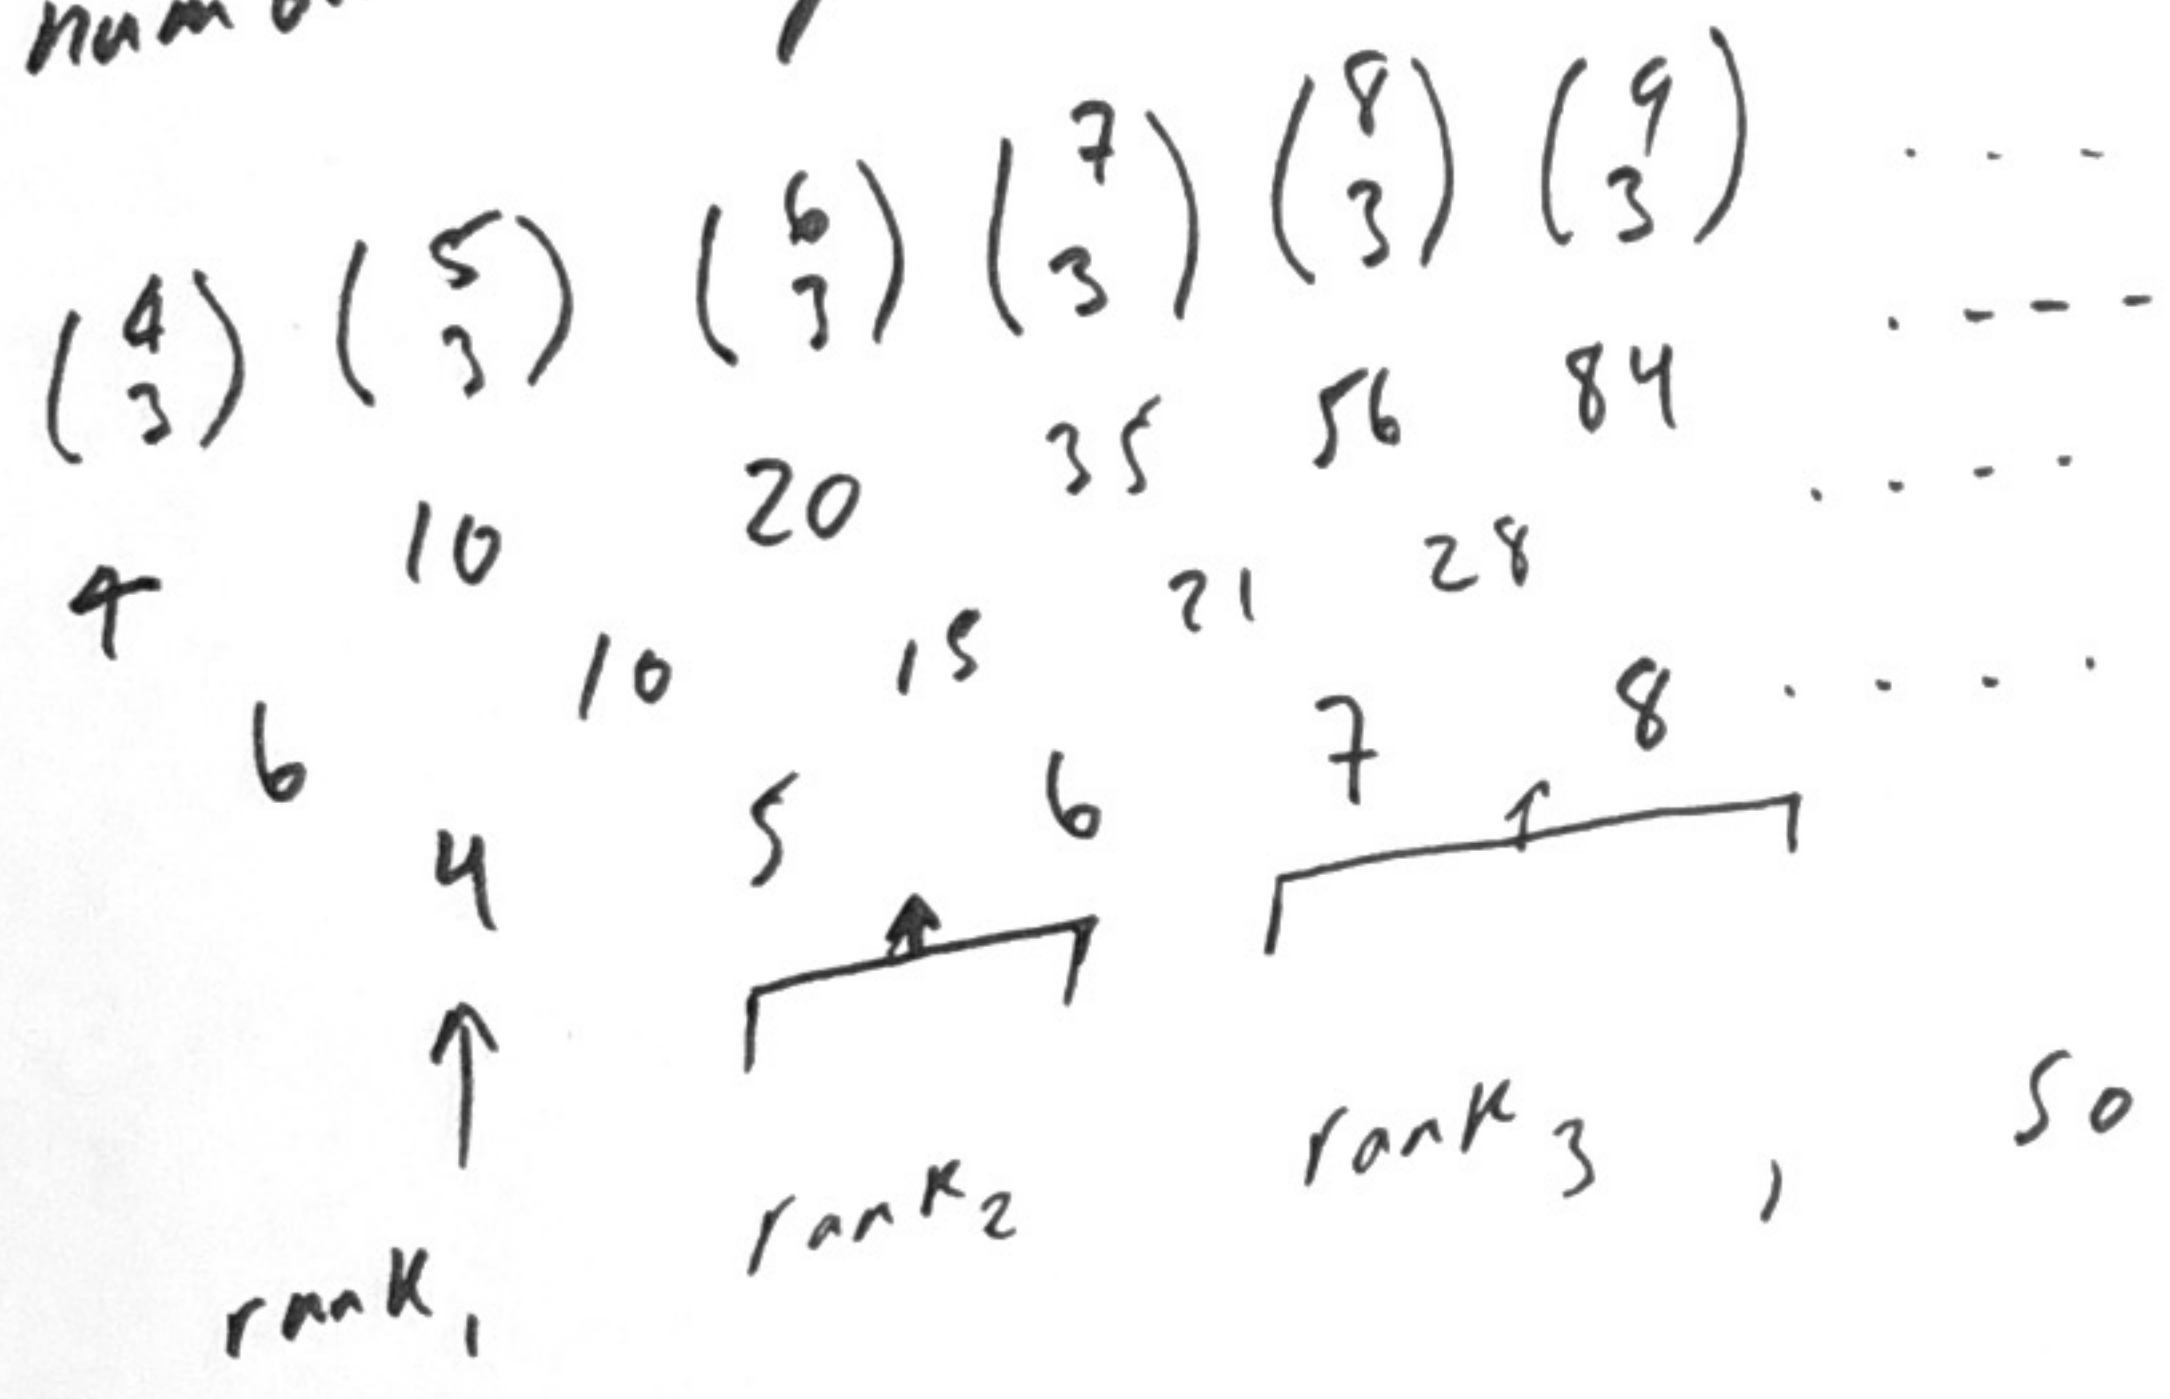 ( 4 3 ) ( 5 3 ) ( 6 3 ) ( 7 3 ) ( 8 3 ) ( 9 3 ) . . .
4 10 20 35 56 84 . - - -
6 10 15 21 28 . . . .
4 5 6 7 8 . . . .
rank 1 rank 2 rank 3 , so